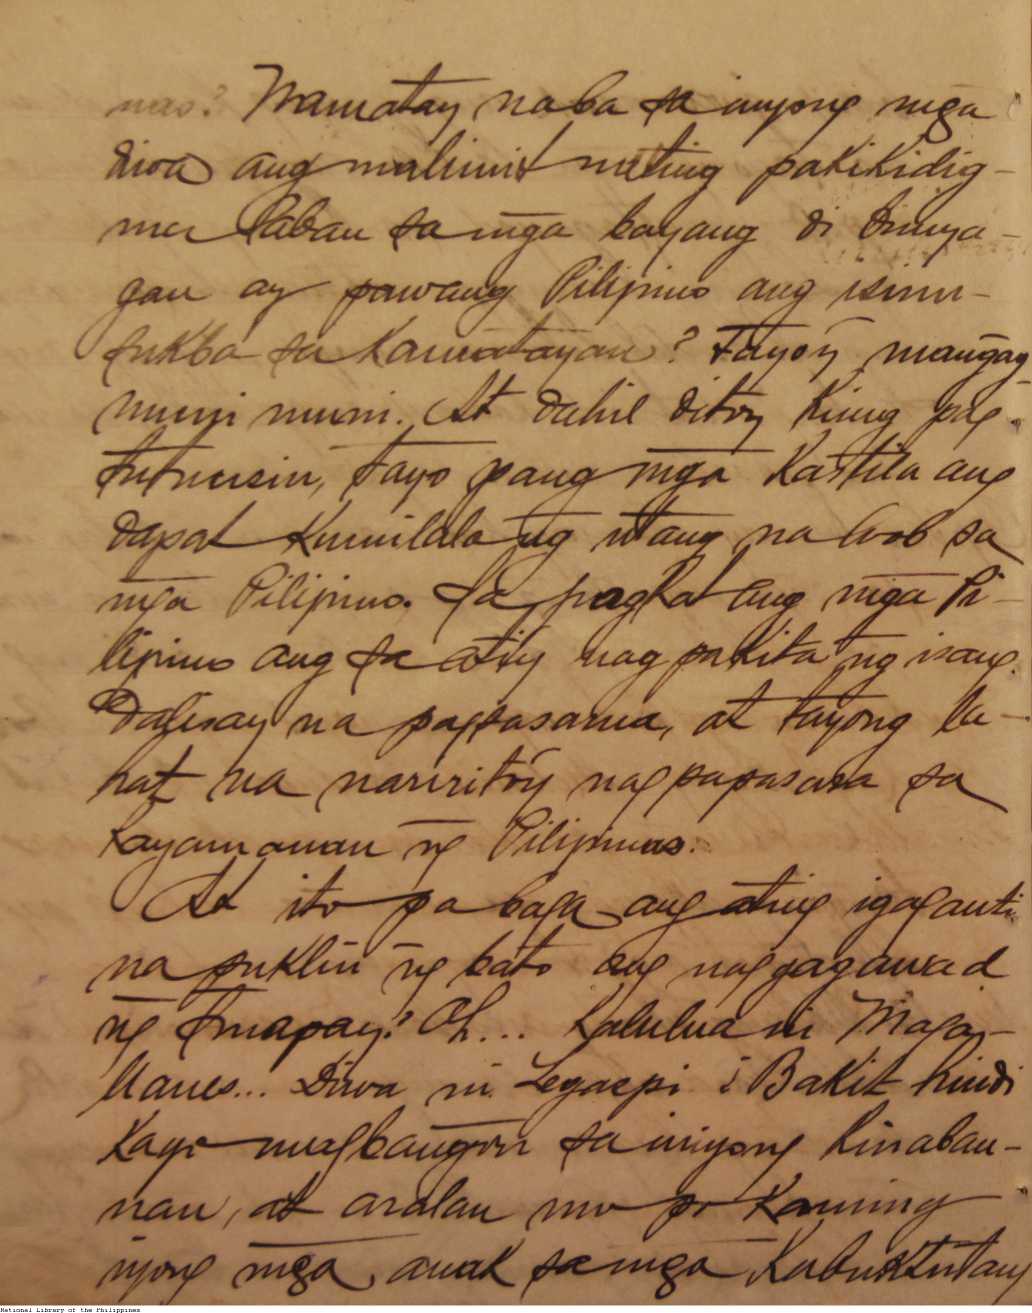 nas? Namatay na ba sa inyong mga
diwa ang malimit nating pakikidig-
ma laban sa mga bayang di binya-
gan ay pawang Pilipino ang isinu-
sukba sa kamatayan? Tayo'y mangag
muni muni. At dahil dito'y kung pag
tutuusin, tayo pang mga Kastila ang
dapat kumilala ng utang na loob sa
mga Pilipino. Sa pagkat ang mga Pi-
lipino ang sa ati'y nag pakita ng isang
Dalisay na pagpasama, at tayong la-
hat na naririto'y nagpapasasa sa
kayamanan ng Pilipinas.
At ito pa baga ang ating igaganti
na suklin ng bato ang naggagawad
ng tinapay? Oh... Kalulua ni Maga-
llanes... Diwa ni Legaspi ¿Bakit hindi
kayo magbangon sa inyong kinabau-
nan, at aralan mo po kaming
inyong mga anak sa mga Kabuktutang
National Library of the Philippines